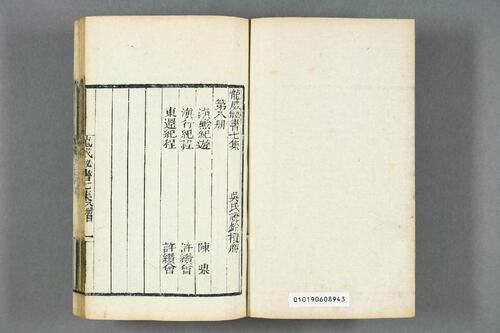 龍威秘書七集 吳氏說鈴攬勝
第八册
滇黔紀遊 陳鼎
滇行紀程 許纘曾
東還紀程 許纘曾
龍威秘書七集八册目 一
010190608943